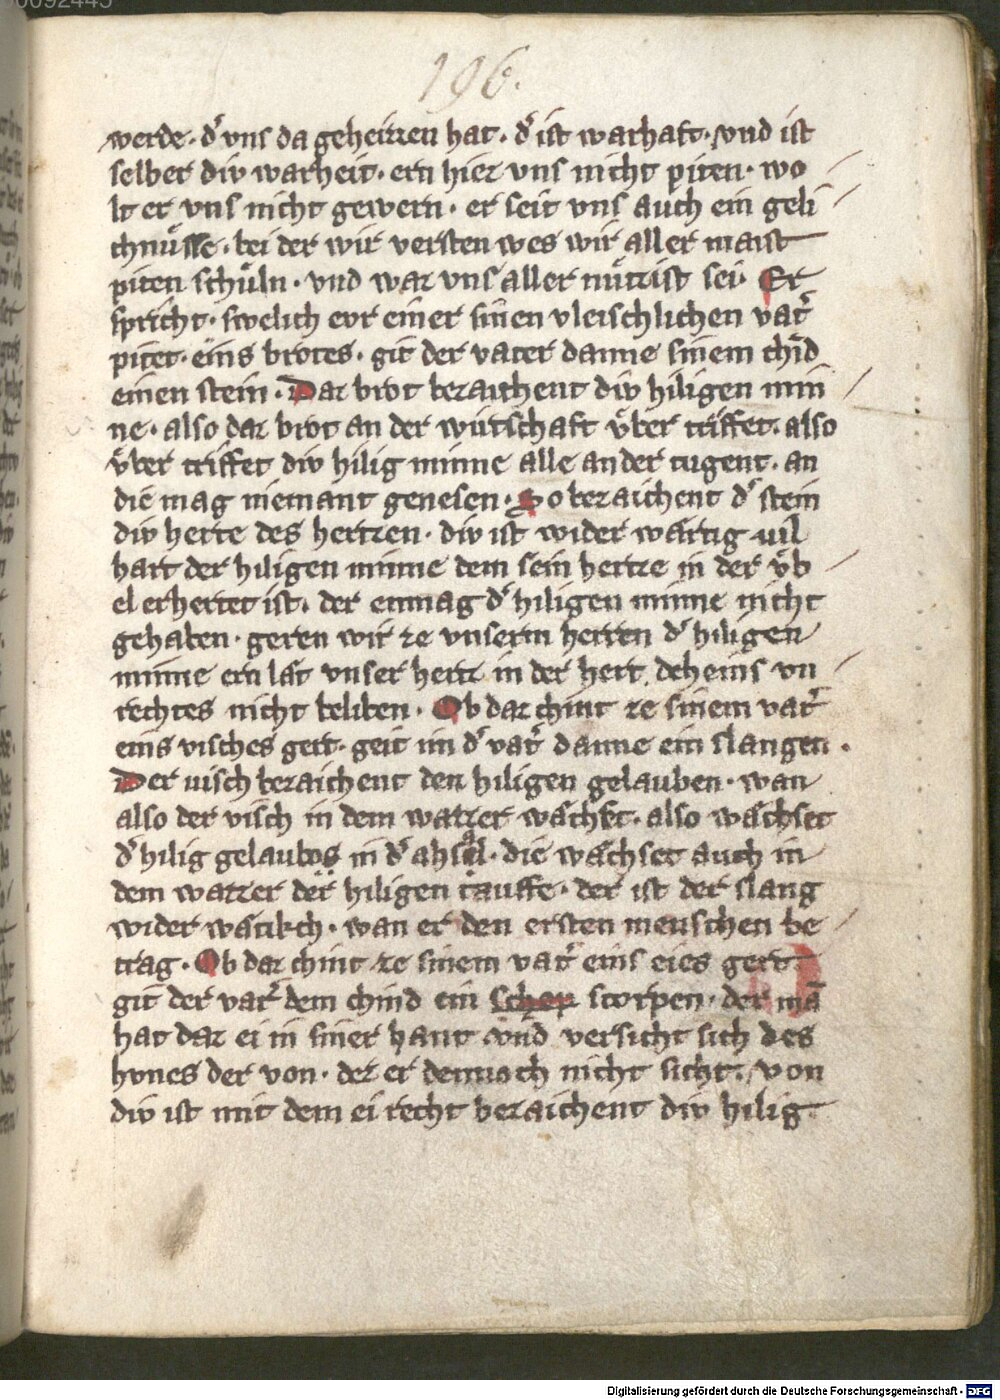 196.
werde · d͛ vns da geheizzen hat · d͛ ist warhaft · vnd ist
selber div warheit · ern hiez vns nicht piten · wo
lt er vns nicht gewern · er seit vns auch ein geli
chnuͤsse · bei der wir versten wes wir aller maist
piten schuͤln · vnd waz vns aller nuͤtzist sei · Er
spricht · swelich evr einer sinen vleischlichen vat͛
pitet · eins brotes · git der vater danne sinem chīd
einen stein · Daz brot bezaichent div hiligen min
ne · also daz brot an der wirtschaft vͤber triffet · also
vͤber triffet div hilig minne alle ander tugent · an
die mag niemant genesen · So bezaichent d͛ stein
div herte des hertzen · div ist wider wartig vil
hart der hiligen minne dem sein hertze in der vͤb
el erhertet ist · der enmag d͛ hiligen minne nicht
gehaben · geren wir ze vnserm herren d͛ hiligen
minne ern lat vnser hertz in der hert decheins vn
rechtes nicht beliben · Ob daz chint ze sinem vat͛
eins visches gert · geit im d͛ vat͛ danne ein slangen ·
Der visch bezaichent den hiligen gelauben · wan
also der visch in dem wazzer wachset · also wachset
d͛ hilig gelaubos in d͛ ahsal · die wachset auch in
dem wazzer der hiligen tauffe · der ist der slang
wider wartikch · wan er den ersten menschen be
trag · Ob daz chint ze sinem vat͛ eins eies gert
git der vat͛ dem chind ein scher scorpen · der mā
hat daz ei in siner hant vnd versicht sich des
hvnes der von · dez er dennoch nicht sicht · von
div ist mit dem ei recht bezaichent div hilig
Digitalisierung gefördert durch die Deutsche Forschungsgemeinschaft - DFG